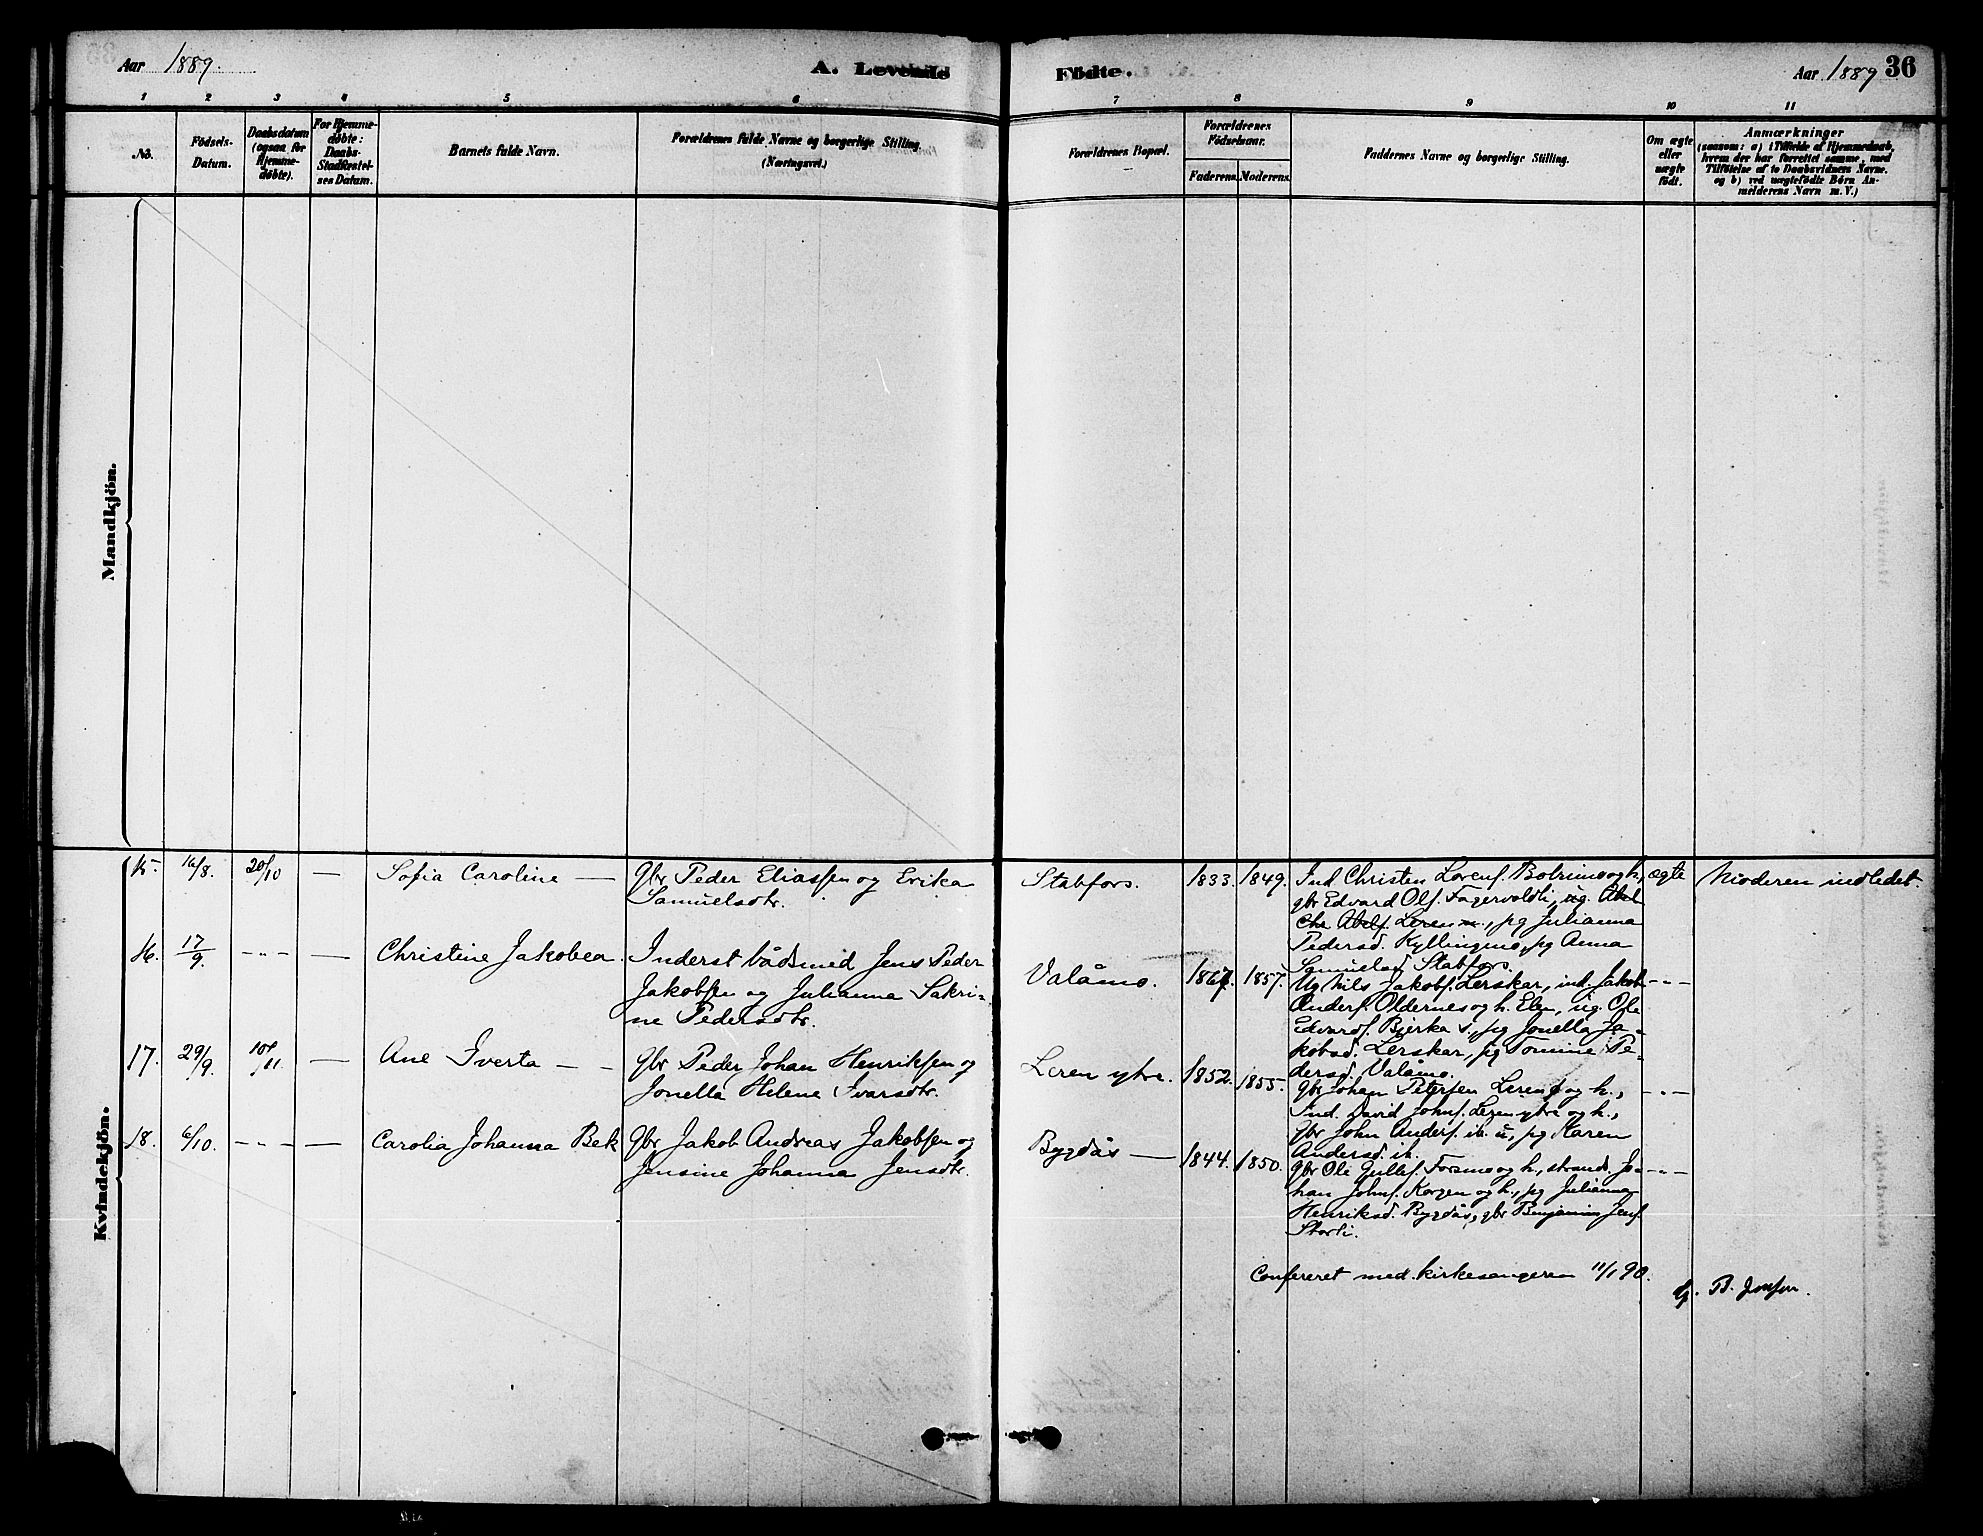 Aar 1889.
A. Levende
Födte.
Aar 1889
36
1 2 3 4 5 6 7 8 9 10 11
No.
Födsels-
Datum.
Daabsdatum
(ogsaa for
Hjemme-
döbte).
For Hjemme-
döbte:
Daabs-
Stadfæstel-
ses Datum.
Barnets fulde Navn.
Forældrenes fulde Navne og borgerlige Stilling
(Næringsvei.)
Forældrenes Bopæl.
Forældrenes
Födselsaar.
Faderens.
Moderens.
Faddernes Navne og borgerlige Stilling.
Om ægte
eller
uægte
født.
Anmærkninger
(saasom: a) i Tilfælde af Hjemmedaab,
hvem der har forrettet samme, med
Tilföielse af to Daabsvidners Navne.
og b) ved uægtefødte Børn An-
melderens Navn m. V.)
Mandkjön.
Kvindekjön.
15. 16/8. 20/10 — Sofia Caroline — Gbr Peder Eliassen og Erika
Samuelsdtr.
Stabfors. 1833. 1849. Ind Christen Lorens. Bolrimo og h.,
gbr Edvard Ols. Fagervoldli, ug.
Leren, pg Julianna
Pedersd. Kyllingmo, pg Anna
Samuelsd Stabfors.
ægte
Moderen indledet.
16. 17/9. -"- — Christine Jakobea. Inderst bådsmed Jens Peder
Jakobsen og Julianna Sakri-
ne Pedersdtr.
Valåmo. 1867. 1857. Ug Nils Jakobs. Lerskar, ind. Jakob
Anders. Oldernes og h. Elen, ug. Ole
Edvards. Bjerka s., pg Jonella Ja-
kobsd. Lerskar, pg Tomine Pe-
dersd. Valåmo.
-"-
17. 29/9. 10/11. — Ane Iverta — — Gbr Peder Johan Henriksen og
Jonella Helene Ivarsdtr.
Leren ytre. 1852. 1855. Gbr Johan Petersen Leren og h.,
Ind. David Johns. Leren ytre og h.,
Gbr John Anders. ib. u, pg Karen
Andersd. ib.
-"-
18. 6/10. -"- — Carolia Johanna Bek Gbr Jakob Andreas Jakobsen og
Jensine Johanna Jensdtr.
Bygdås — 1844. 1850. Gbr Ole Gullef. Forsmo og h., strands. Jo-
han Johns. Korgen og h., pg Julianna
Henriksd. Bygdås, gbr Benjamin Jens.
Storli.
-"-
Confereret med kirkesangeren 11/1 90.
B. Jensen.